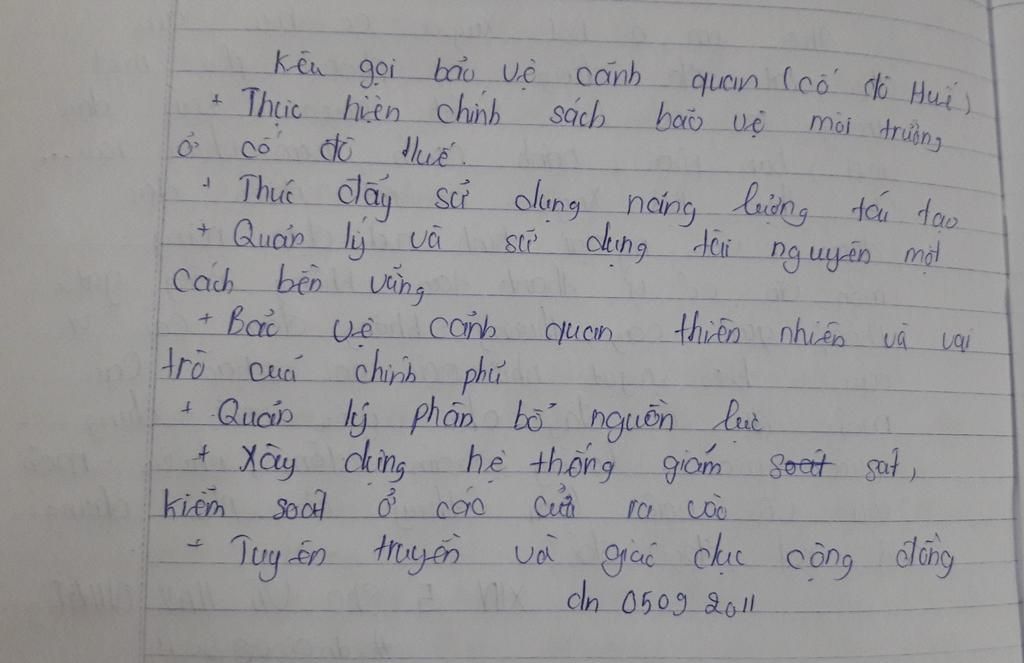 Kêu gọi bảo vệ cảnh quan (cố đô Huế)
+ Thực hiện chính sách bảo vệ môi trường
ở cố đô Huế.
+ Thúc đẩy sử dụng năng lượng tái tạo
+ Quản lý và sử dụng tài nguyên một
cách bền vững
+ Bảo vệ cảnh quan thiên nhiên và vai
trò của chính phủ
+ Quản lý phân bổ nguồn lực
+ Xây dựng hệ thống giám soát sat,
kiểm soát ở các cửa ra vào
- Tuyên truyền và giáo dục cộng đồng
dn 0509 2011